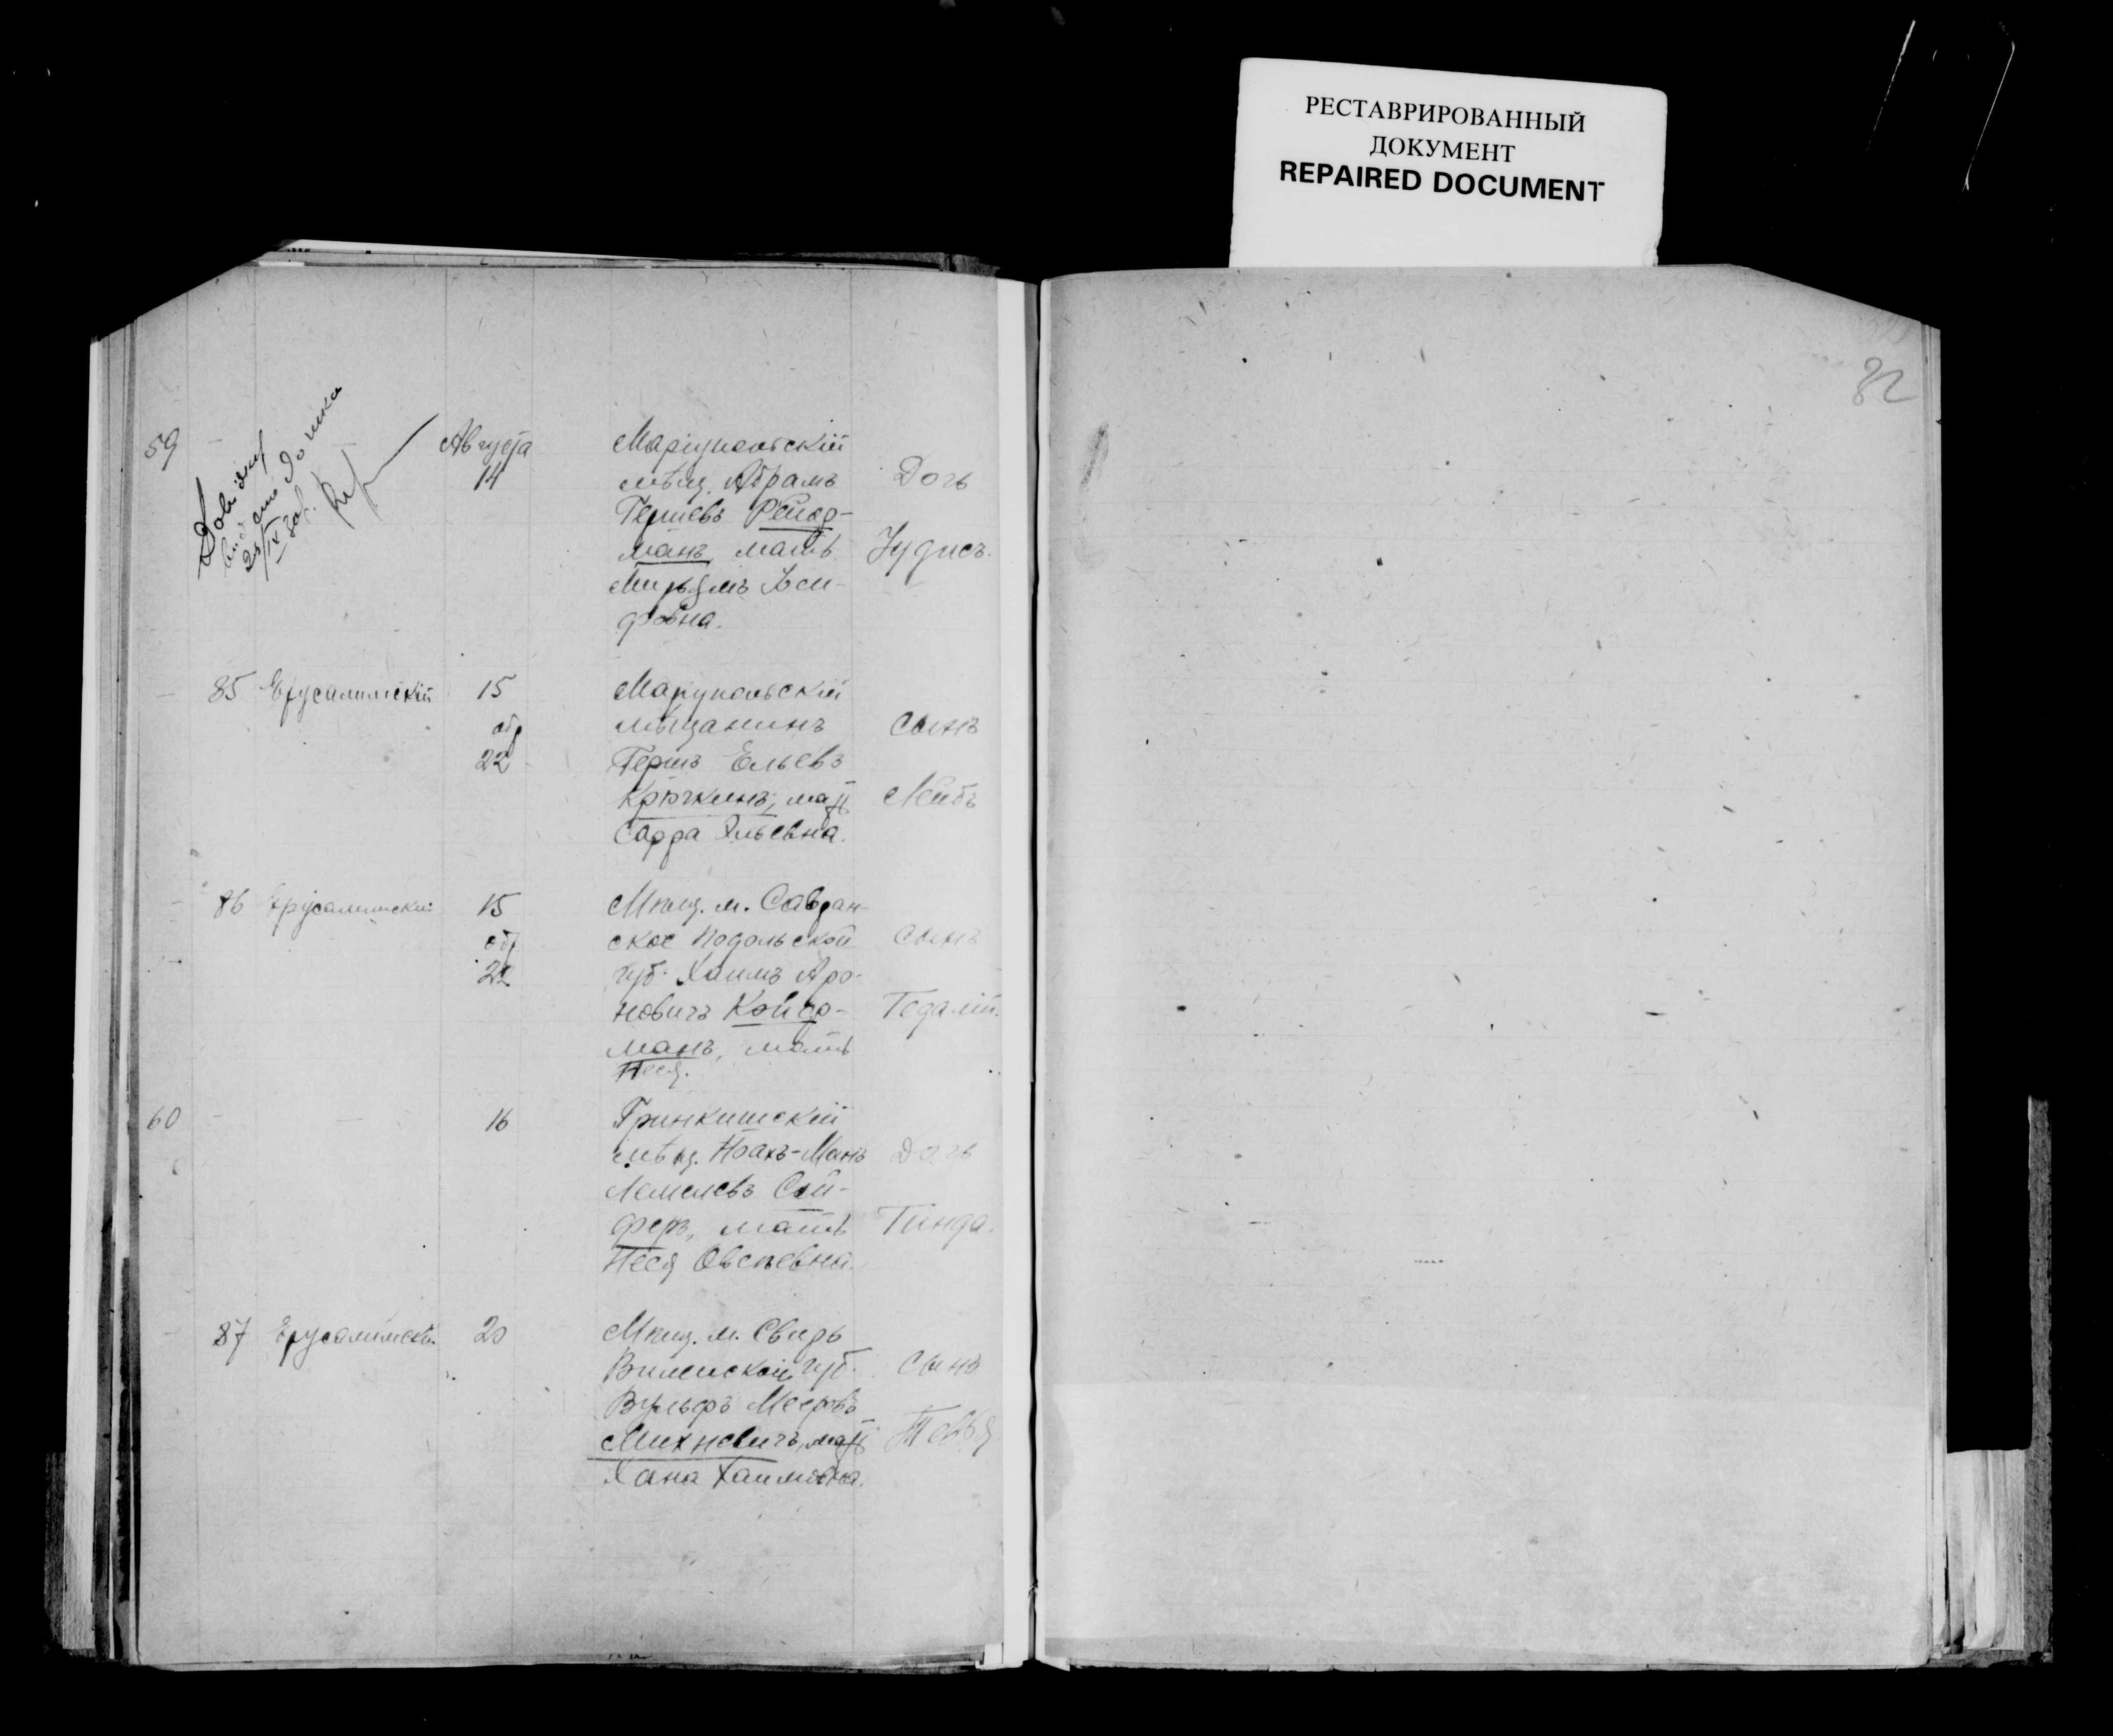 РЕСТАВРИРОВАННЫЙ
ДОКУМЕНТ
REPAIRED DOCUMENT
82
59
Августа
14
Маріупольскій
мѣщ. Абрамъ
Гершевъ Рейд-
манъ, мать
Мирьямъ Іоси-
фовна.
Дочь
Іудись.
85 Ерусалимскій 15
обр
22
Маріупольскій
мѣщанинъ
Гершъ Ельевъ
Крючкинъ, мать
Сарра Ильевна.
сынъ
Лейбъ
86 Ерусалимскій 15
обр
22
Мѣщ. м. Савран-
ское Подольской
губ. Хаимъ Аро-
новичъ Койф-
манъ, мать
Песя.
сынъ
Гедалій.
60
16
Гринкишскій
мѣщ. Ноахъ-Манъ
Лемелевъ Сой-
феръ, мать
Песя Овсѣевна.
Дочь
Гинда.
87 Ерусалимскій 20
Мѣщ. м. Свирь
Виленской губ.
Вульфъ Мееровъ
Михневичъ, мать
Хана Хаимовна.
сынъ
Тевья